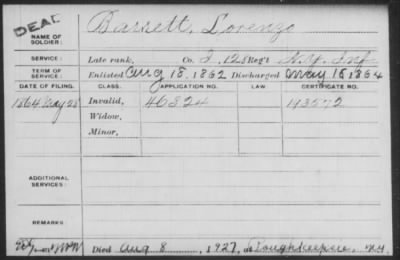 DEAD
NAME OF SOLDIER: Barrett, Lorenzo
SERVICE: Late rank, Co. I, 128 Reg't N.Y. Inf
TERM OF SERVICE: Enlisted Aug 18, 1862 Discharged May 18, 1864
DATE OF FILING. CLASS. APPLICATION NO. LAW. CERTIFICATE NO.
1864 May 28 Invalid, 46824 143572
Widow,
Minor,
ADDITIONAL SERVICES:
REMARKS:
Died Aug 8, 1927, at Poughkeepsie, N.Y.